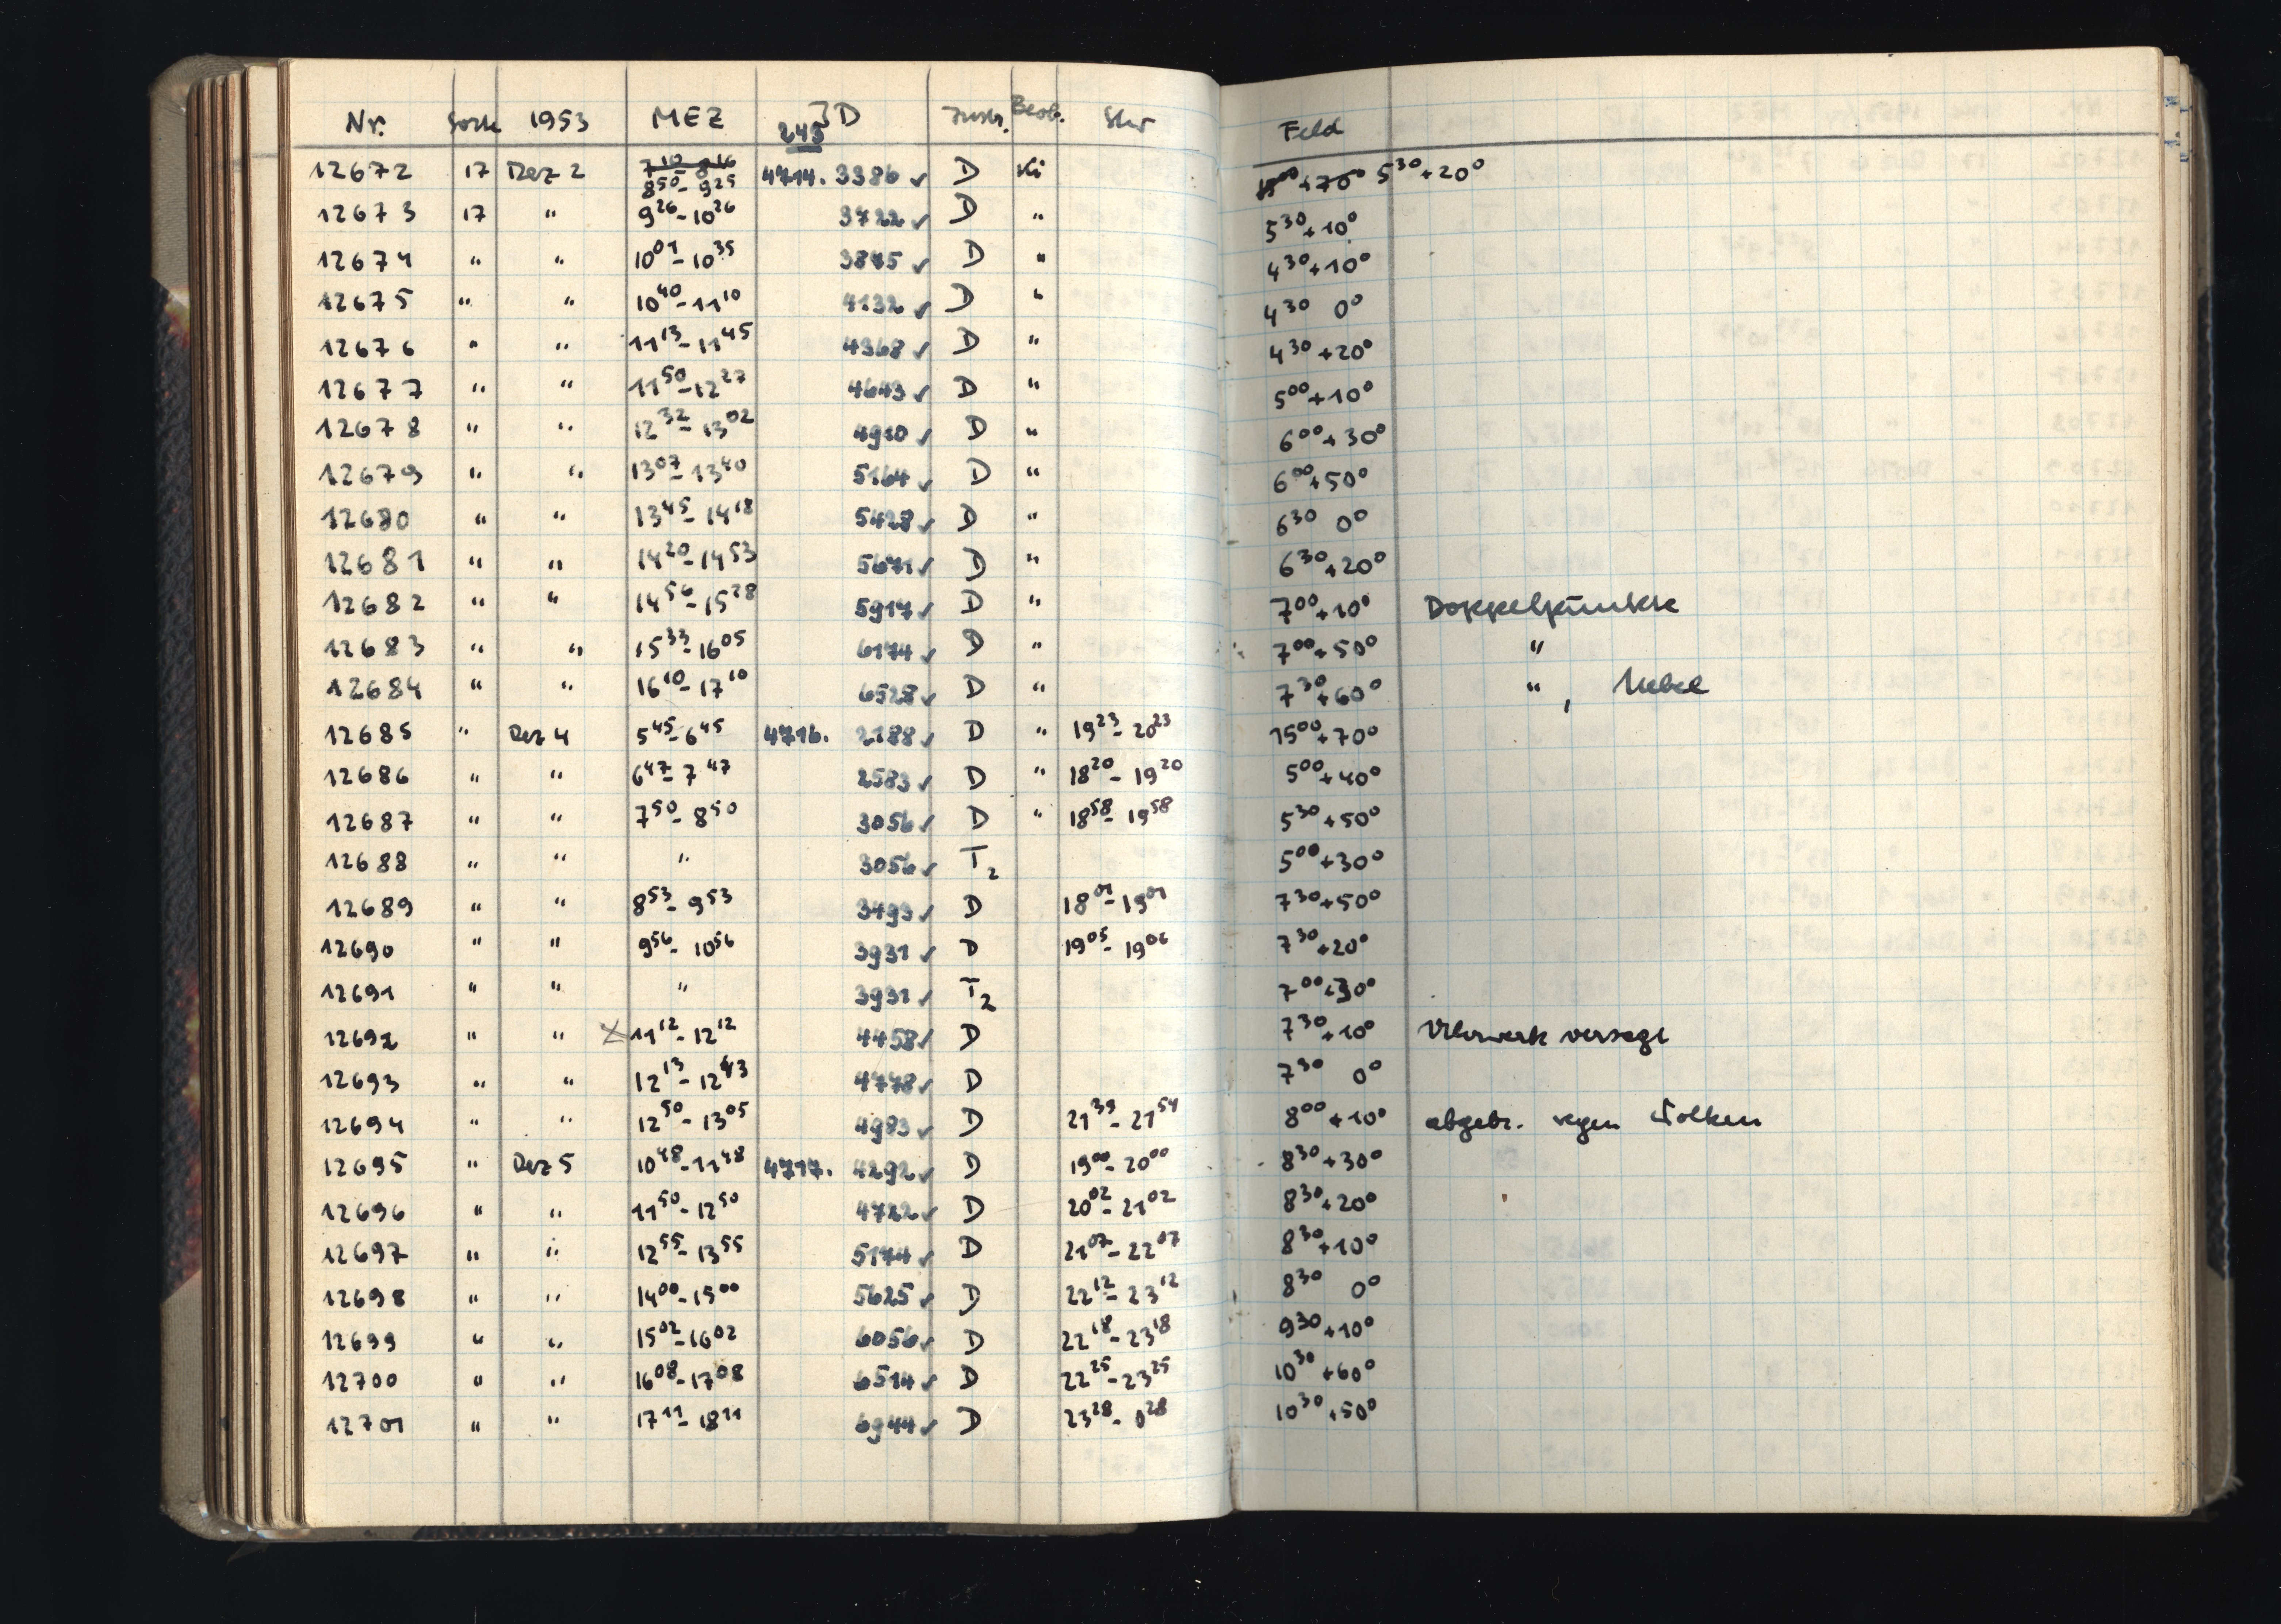 Nr. Sorte 1953 MEZ JD 243 Instr. Beob. Stw Feld
12672 17 Dez 2 7¹⁰-8¹⁶ 8⁵⁰-9²⁵ 4714.3386 ✓ A Ki 5³⁰+20°
12673 17 " 9²⁶-10²⁶ 3722 ✓ A " 5³⁰+10°
12674 " " 10⁰¹-10³⁵ 3875 ✓ A " 4³⁰+10°
12675 " " 10⁴⁰-11¹⁰ 4132 ✓ A " 4³⁰ 0°
12676 " " 11¹³-11⁴⁵ 4368 ✓ A " 4³⁰+20°
12677 " " 11⁵⁰-12²⁷ 4643 ✓ A " 5⁰⁰+10°
12678 " " 12³²-13⁰² 4910 ✓ A " 6⁰⁰+30°
12679 " " 13⁰⁷-13⁴⁰ 5164 ✓ A " 6⁰⁰+50°
12680 " " 13⁴⁵-14¹⁸ 5428 ✓ A " 6³⁰ 0°
12681 " " 14²⁰-14⁵³ 5671 ✓ A " 6³⁰+20°
12682 " " 14⁵⁶-15²⁸ 5917 ✓ A " 7⁰⁰+10° Doppelpunkte
12683 " " 15³³-16⁰⁵ 6174 ✓ A " 7⁰⁰+50° "
12684 " " 16¹⁰-17¹⁰ 6528 ✓ A " 7³⁰+60° ", Nebel
12685 " Dez 4 5⁴⁵-6⁴⁵ 4716. 2188 ✓ A " 19²³-20²³ 15⁰⁰+70°
12686 " " 6⁴⁷-7⁴⁷ 2583 ✓ A " 18²⁰-19²⁰ 5⁰⁰+40°
12687 " " 7⁵⁰-8⁵⁰ 3056 ✓ A " 18⁵⁸-19⁵⁸ 5³⁰+50°
12688 " " " 3056 ✓ T₂ 5⁰⁰+30°
12689 " " 8⁵³-9⁵³ 3493 ✓ A 18⁰¹-19⁰¹ 7³⁰+50°
12690 " " 9⁵⁶-10⁵⁶ 3931 ✓ A 19⁰⁵-19⁰⁶ 7³⁰+20°
12691 " " " 3931 ✓ T₂ 7⁰⁰+30°
12692 " " x 11¹²-12¹² 4458 ✓ A 7³⁰+10° Uhrwerk versagt
12693 " " 12¹³-12⁴³ 4778 ✓ A 7³⁰ 0°
12694 " " 12⁵⁰-13⁰⁵ 4983 ✓ A 21³⁹-21⁵⁴ 8⁰⁰+10° abgebr. wegen Wolken
12695 " Dez 5 10⁴⁸-11⁴⁸ 4717. 4292 ✓ A 19⁰⁰-20⁰⁰ 8³⁰+30°
12696 " " 11⁵⁰-12⁵⁰ 4722 ✓ A 20⁰²-21⁰² 8³⁰+20°
12697 " " 12⁵⁵-13⁵⁵ 5174 ✓ A 21⁰⁷-22⁰⁷ 8³⁰+10°
12698 " " 14⁰⁰-15⁰⁰ 5625 ✓ A 22¹²-23¹² 8³⁰ 0°
12699 " " 15⁰²-16⁰² 6056 ✓ A 22¹⁸-23¹⁸ 9³⁰+10°
12700 " " 16⁰⁸-17⁰⁸ 6514 ✓ A 22²⁵-23²⁵ 10³⁰+60°
12701 " " 17¹¹-18¹¹ 6944 ✓ A 23²⁸-0²⁸ 10³⁰+50°